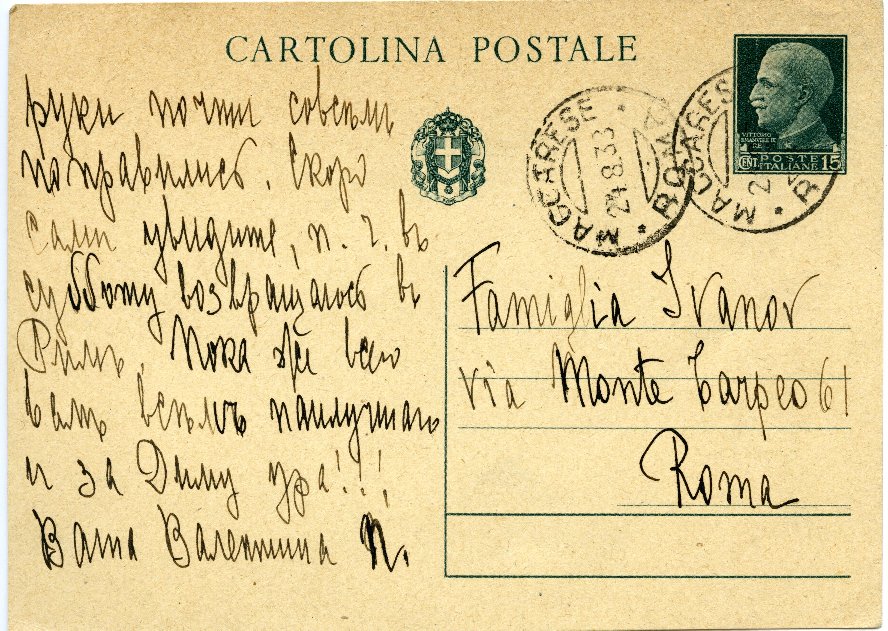 CARTOLINA POSTALE
руки почти совсѣмъ
поправились. Скоро
сами увидите, п. ч. въ
субботу возвращаюсь въ
Римъ. Пока же всего
вамъ всѣмъ наилучшаго
и за Диму ура!!!,
Ваша Валентина П.
MACCARESE * ROMA *
24 8 33
MACCARESE * ROMA
VITTORIO
EMANUELE III
RE
CENT POSTE 15
ITALIANE
Famiglia Ivanov
via Monte Tarpeo 61
Roma